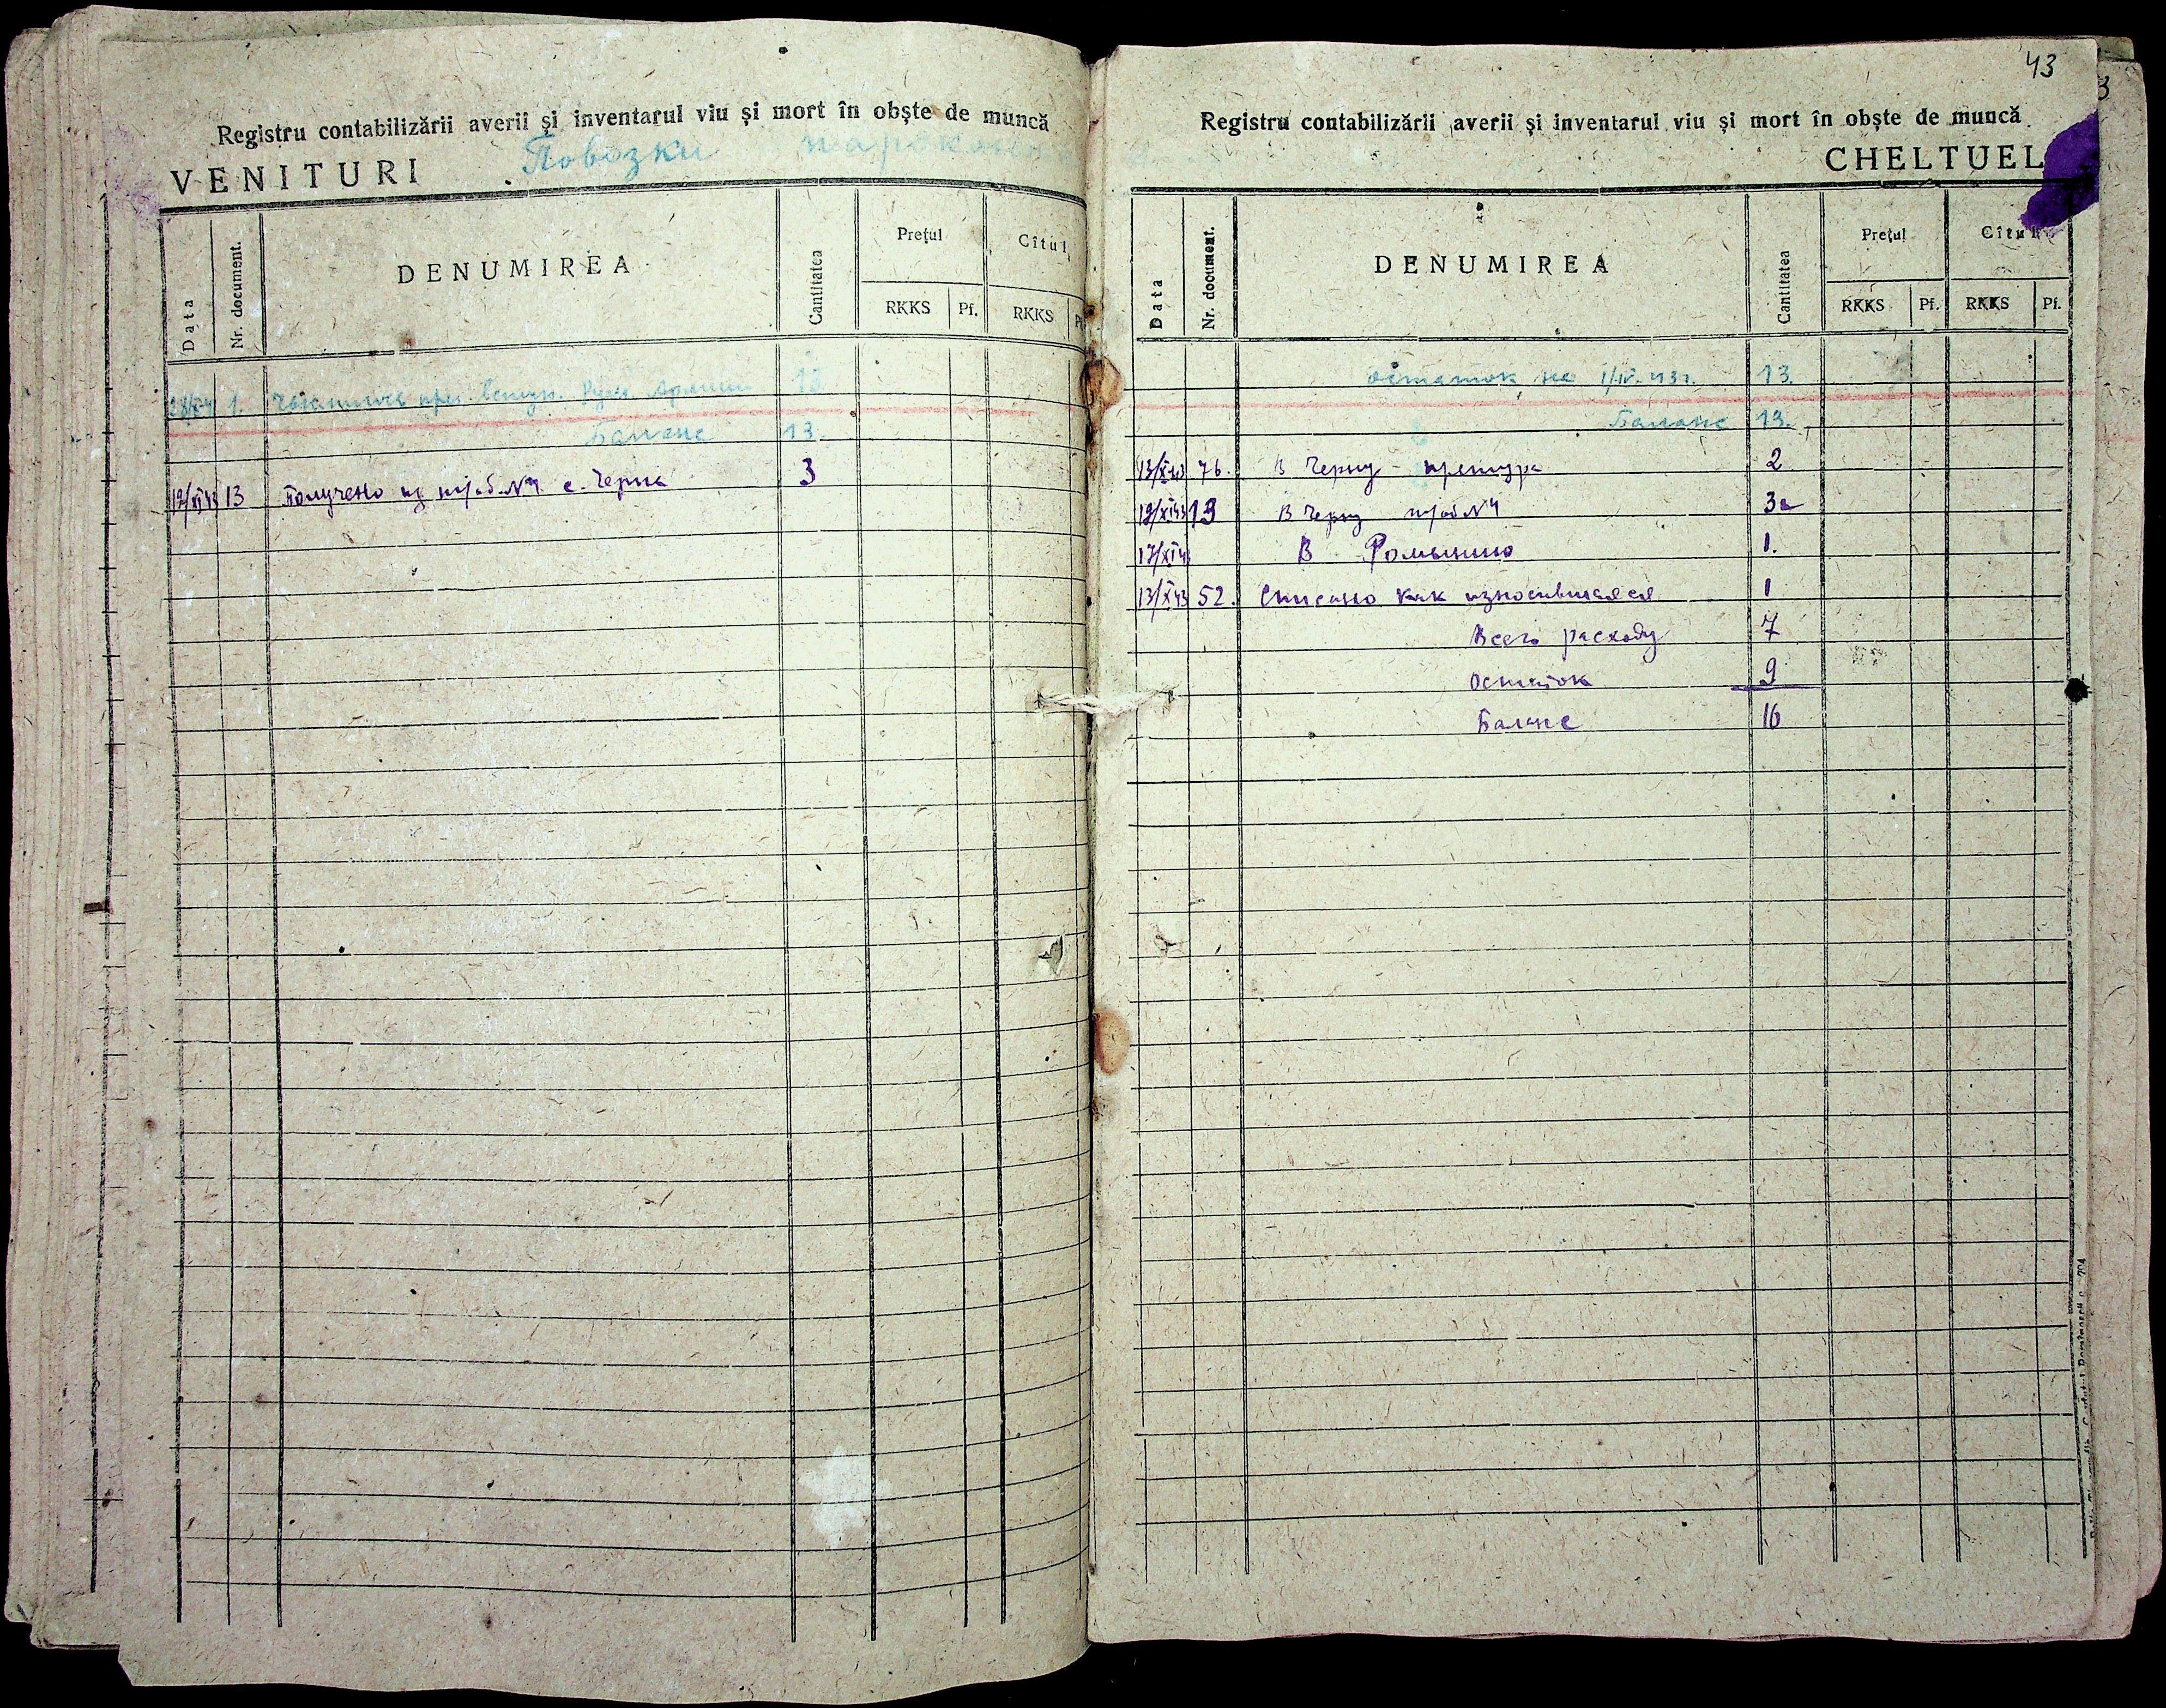 Registru contabilizării averii și inventarul viu și mort în obște de muncă
VENITURI Повозки
Data Nr. document. DENUMIREA Cantitatea Prețul Cîtul
RKKS Pf. RKKS
1. 13
Баланс 13.
12/XI 43 13 Получено из №4 с. Черна 3
43
Registru contabilizării averii și inventarul viu și mort în obște de muncă
CHELTUEL
Data Nr. document. DENUMIREA Cantitatea Prețul Cîtul
RKKS Pf. RKKS Pf.
остаток на 1/IV. 43 г. 13.
Баланс 13.
13/X 43 76. В Черну – претура 2
12/XI 43 13 В Черну №4 3
17/XI 4 В Ромынию 1.
13/X 43 52. Списано как износившаяся 1
Всего расходу 7
Остаток 9
Баланс 16